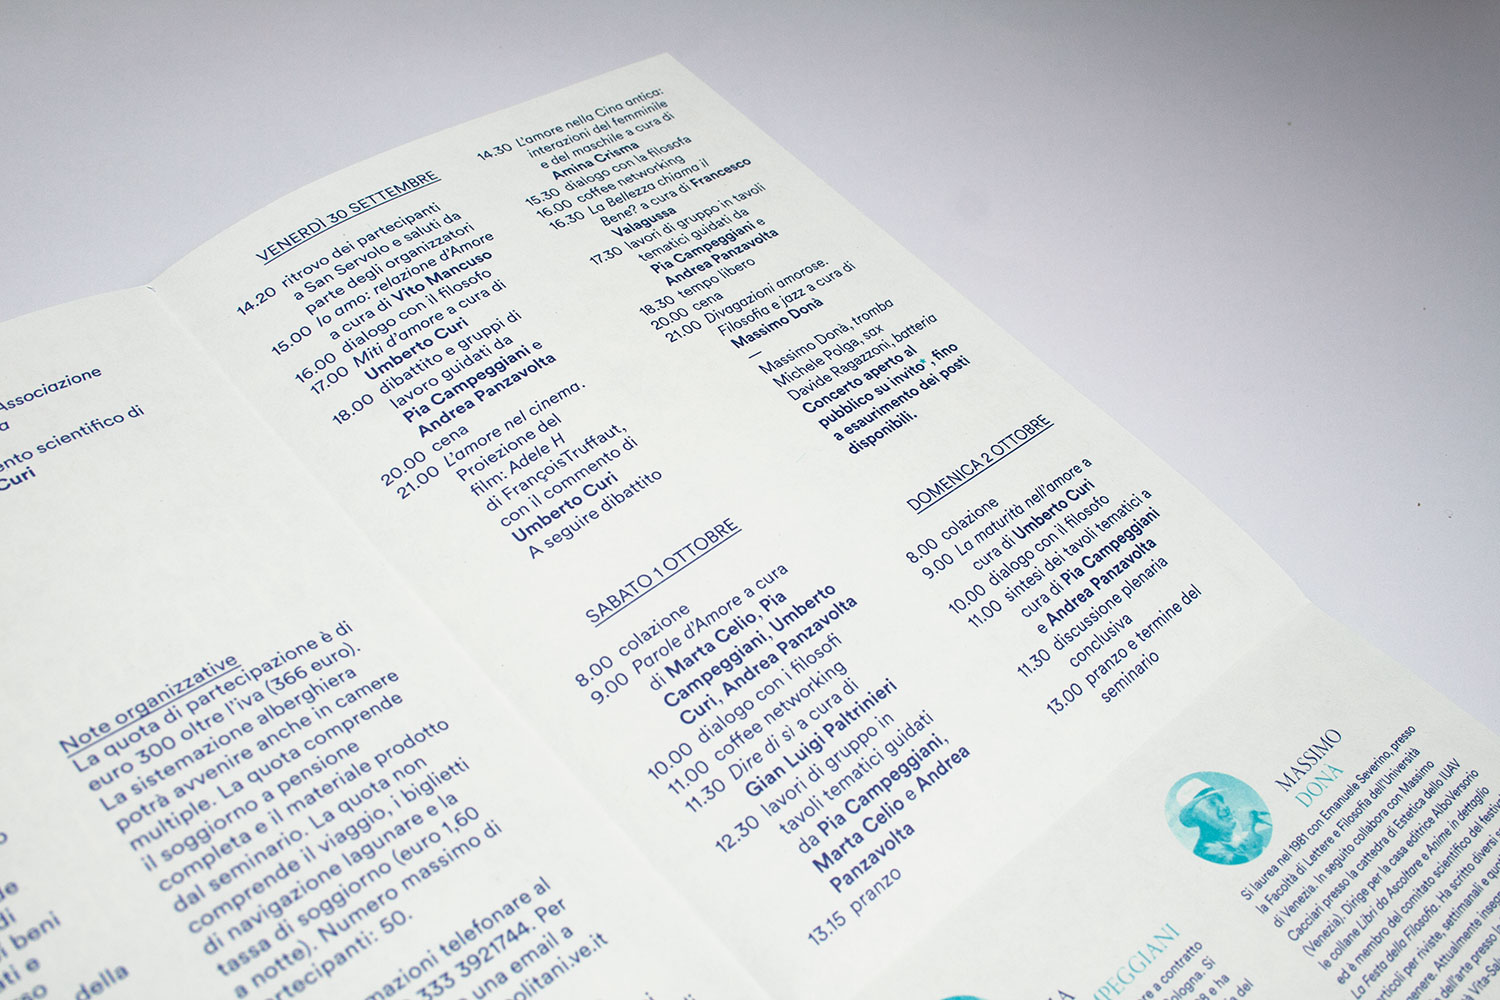 Associazione
a
ento scientifico di
Curi
Note organizzative
La quota di partecipazione è di
euro 300 oltre l'iva (366 euro).
La sistemazione alberghiera
potrà avvenire anche in camere
multiple. La quota comprende
il soggiorno a pensione
completa e il materiale prodotto
dal seminario. La quota non
comprende il viaggio, i biglietti
di navigazione lagunare e la
tassa di soggiorno (euro 1,60
a notte). Numero massimo di
rtecipanti: 50.
mazioni telefonare al
333 3921744. Per
una email a
politani.ve.it
di
i beni
ati e
della
VENERDÌ 30 SETTEMBRE
14.20 ritrovo dei partecipanti
a San Servolo e saluti da
parte degli organizzatori
15.00 Io amo: relazione d'Amore
a cura di Vito Mancuso
16.00 dialogo con il filosofo
17.00 Miti d'amore a cura di
Umberto Curi
18.00 dibattito e gruppi di
lavoro guidati da
Pia Campeggiani e
Andrea Panzavolta
20.00 cena
21.00 L'amore nel cinema.
Proiezione del
film: Adele H
di François Truffaut,
con il commento di
Umberto Curi
A seguire dibattito
SABATO 1 OTTOBRE
8.00 colazione
9.00 Parole d'Amore a cura
di Marta Celio, Pia
Campeggiani, Umberto
Curi, Andrea Panzavolta
10.00 dialogo con i filosofi
11.00 coffee networking
11.30 Dire di sì a cura di
Gian Luigi Paltrinieri
12.30 lavori di gruppo in
tavoli tematici guidati
da Pia Campeggiani,
Marta Celio e Andrea
Panzavolta
13.15 pranzo
14.30 L'amore nella Cina antica:
interazioni del femminile
e del maschile a cura di
Amina Crisma
15.30 dialogo con la filosofa
16.00 coffee networking
16.30 La Bellezza chiama il
Bene? a cura di Francesco
Valagussa
17.30 lavori di gruppo in tavoli
tematici guidati da
Pia Campeggiani e
Andrea Panzavolta
18.30 tempo libero
20.00 cena
21.00 Divagazioni amorose.
Filosofia e jazz a cura di
Massimo Donà
—
Massimo Donà, tromba
Michele Polga, sax
Davide Ragazzoni, batteria
Concerto aperto al
pubblico su invito*, fino
a esaurimento dei posti
disponibili.
DOMENICA 2 OTTOBRE
8.00 colazione
9.00 La maturità nell'amore a
cura di Umberto Curi
10.00 dialogo con il filosofo
11.00 sintesi dei tavoli tematici a
cura di Pia Campeggiani
e Andrea Panzavolta
11.30 discussione plenaria
conclusiva
13.00 pranzo e termine del
seminario
MASSIMO
DONÀ
Si laurea nel 1981 con Emanuele Severino, presso
la Facoltà di Lettere e Filosofia dell'Università
di Venezia. In seguito collabora con Massimo
Cacciari presso la cattedra di Estetica dello IUAV
(Venezia). Dirige per la casa editrice AlboVersorio
le collane Libri da Ascoltare e Anime in dettaglio
ed è membro del comitato scientifico del festival
La Festa della Filosofia. Ha scritto diversi
articoli per riviste, settimanali e
genere. Attualmente
dell'arte presso
Vita-Salu
MPEGGIANI
re a contratto
ologna. Si
e ha
del